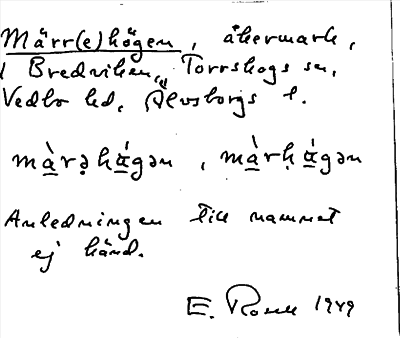 Märr(e)högen, åkermark,
i Bredviken, Torrskogs sn,
Vedbo hd, Älvsborgs l.
mà̱rə̣há̱gən, mà̱rḥá̱gən
Anledningen till namnet
ej känd.
E. Rosell 1949